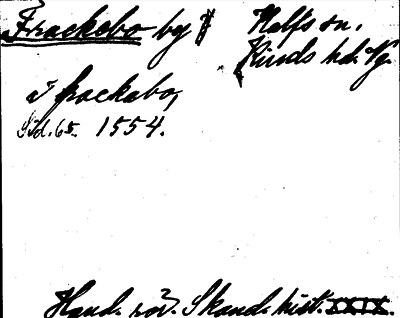 Frackabo by Kalfs sn.
Kinds hd. Vg.
i frackabo,
Sid. 65. 1554.
Hand. rör. Skand. hist. XXIX.